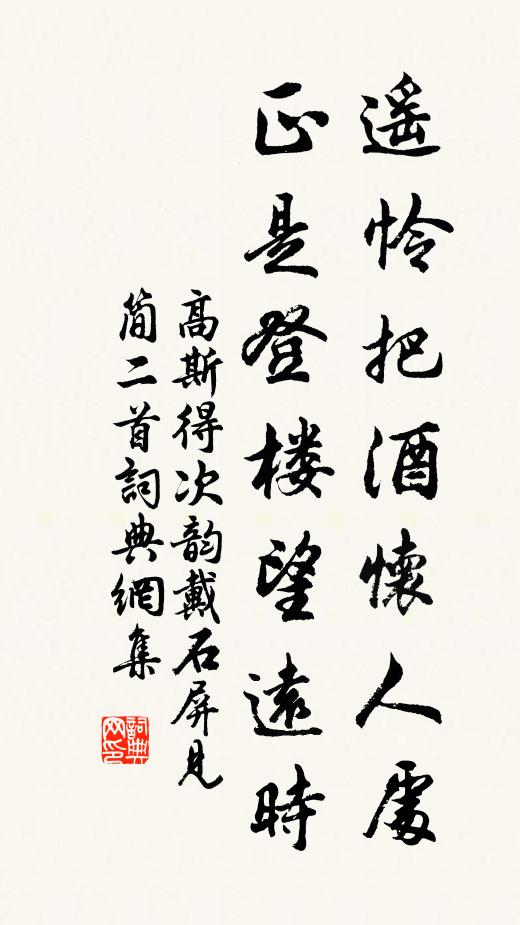 遥怜把酒懷人處
正是登楼望遠時
高斯得次韵戴石屏見
简二首詞典網集
詞典網印